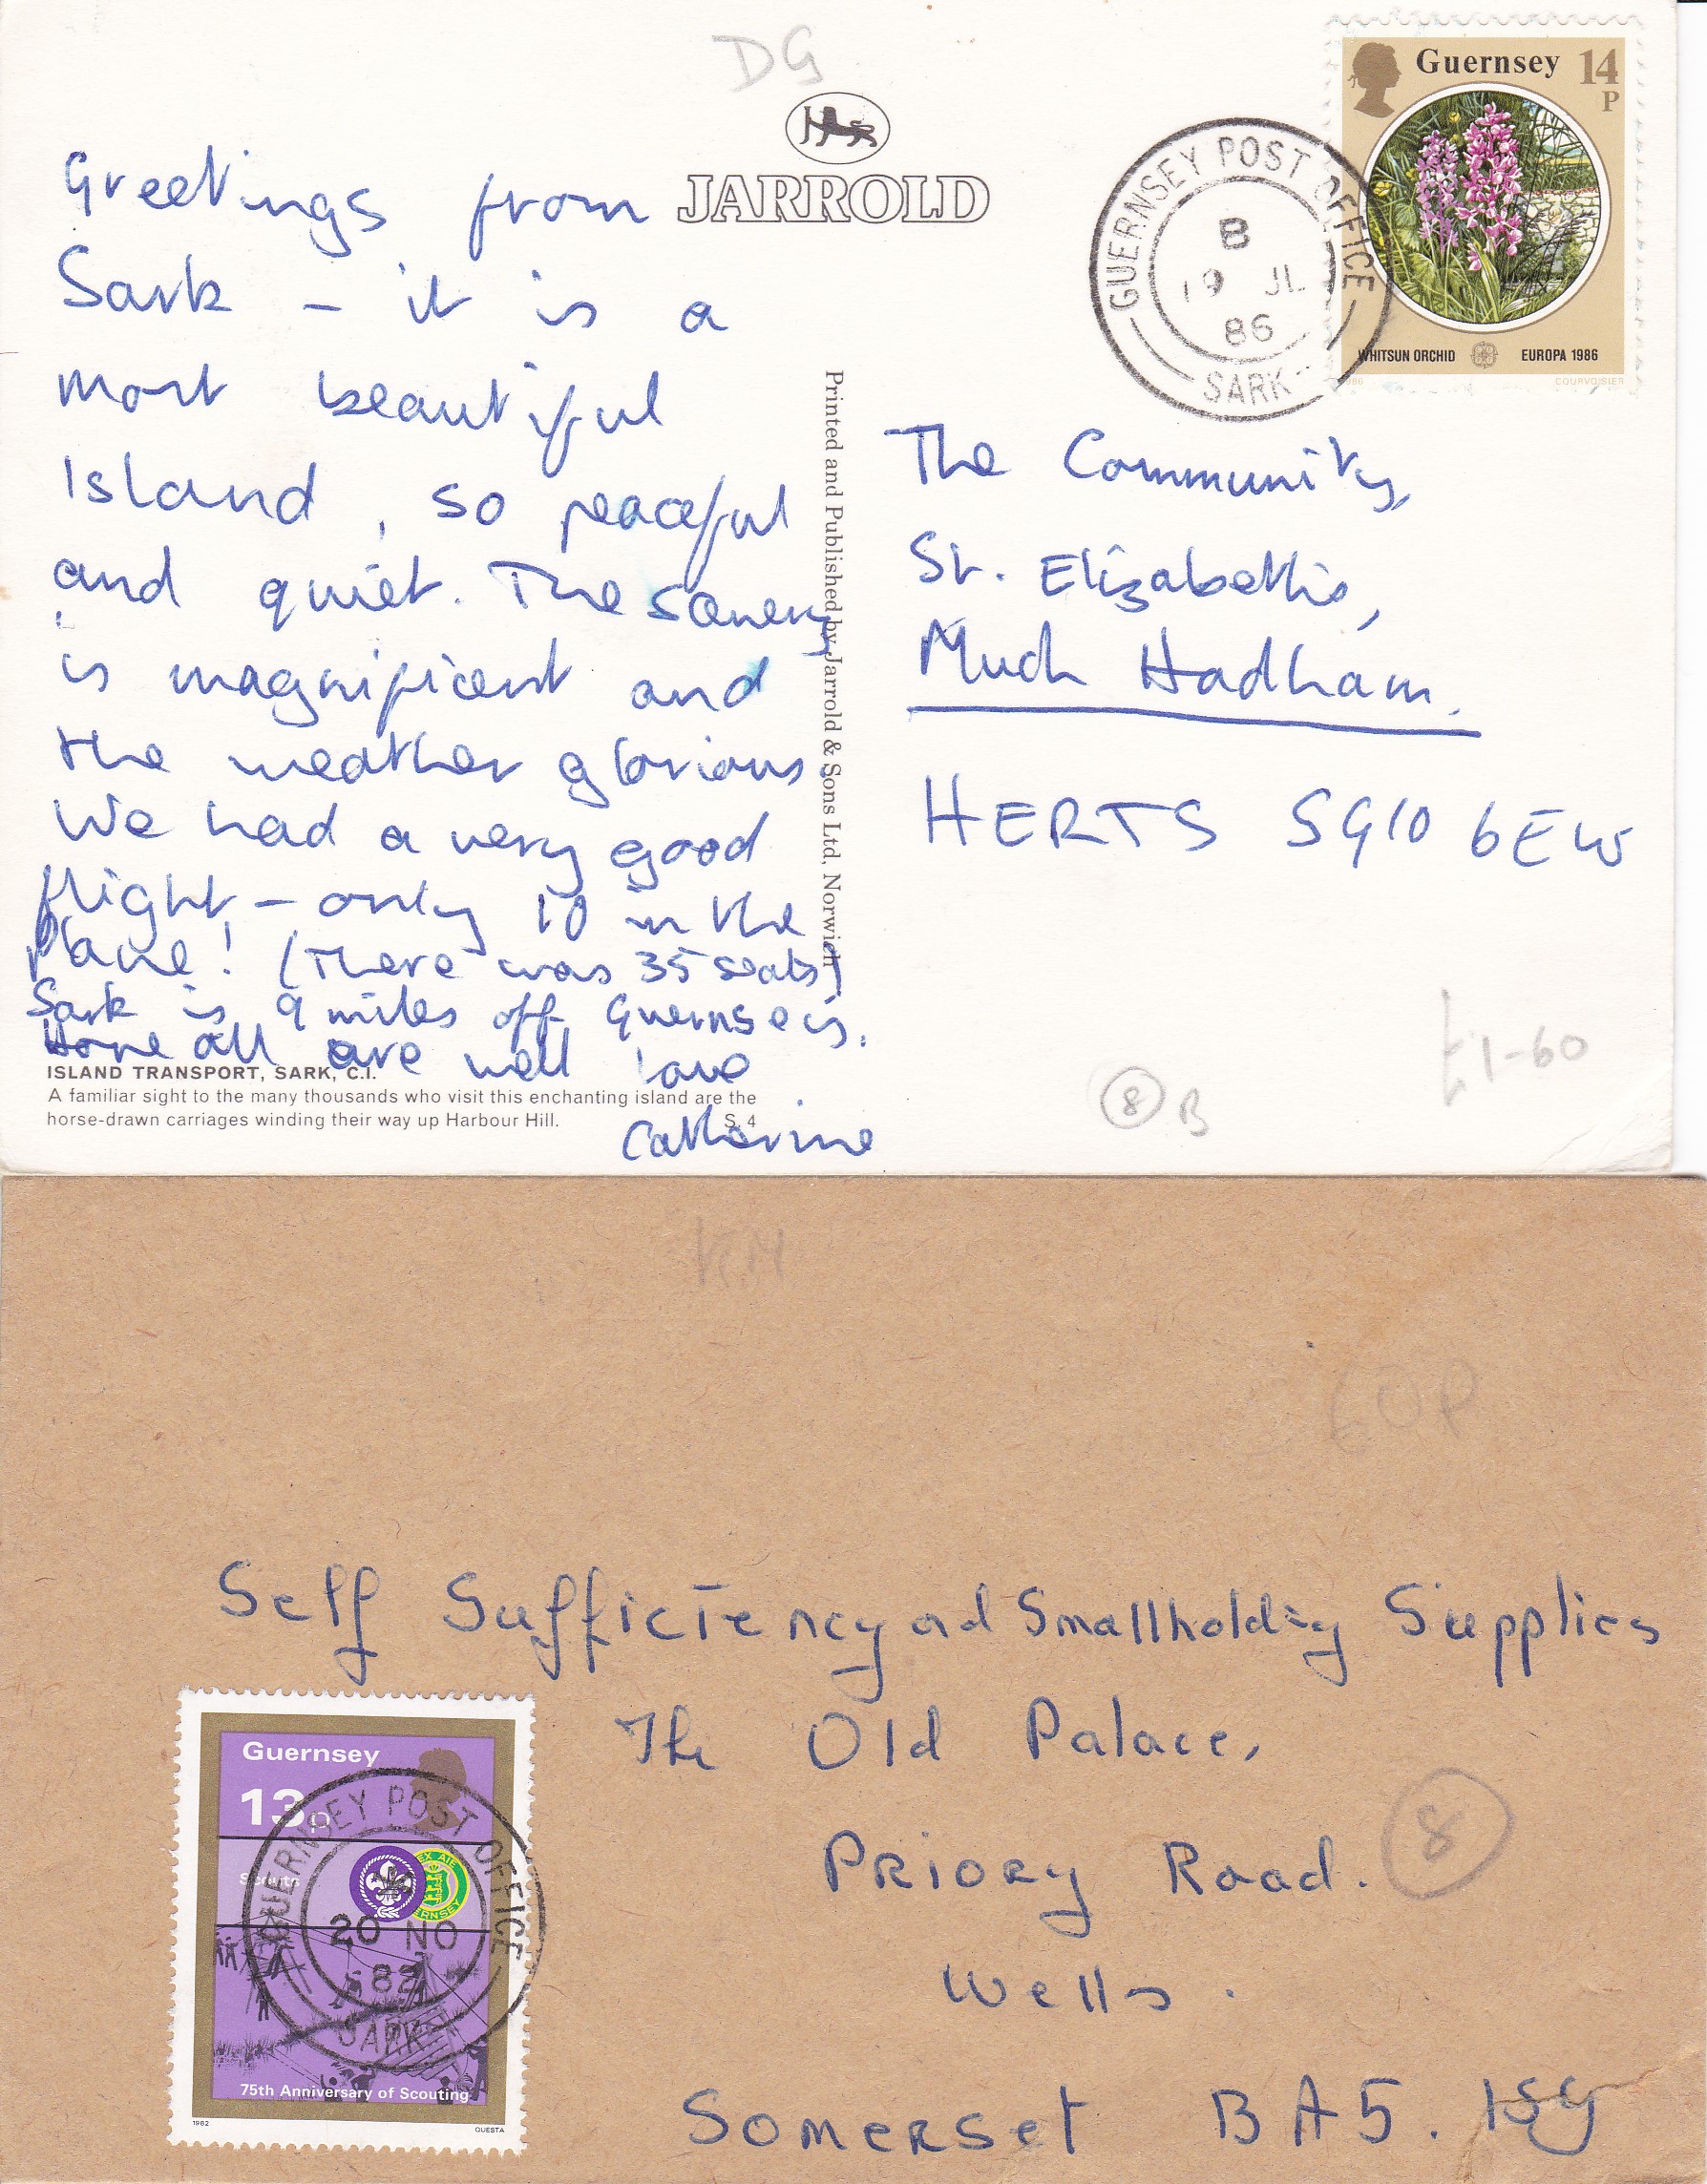 DG
JARROLD
Guernsey 14
P
WHITSUN ORCHID EUROPA 1986
COURVOISIER
GUERNSEY POST OFFICE
B
19 JL
86
SARK
Greetings from
Sark - it is a
most beautiful
Island, so peaceful
and quiet. The scenery
is magnificent and
the weather glorious
We had a very good
flight - only 10 in the
plane! (There was 35 seats)
Sark is 9 miles off Guernsey.
Hope all are well love
Catherine
Printed and Published by Jarrold & Sons Ltd, Norwich
The Community,
St. Elizabeth's,
Much Hadham.
HERTS SG10 6EW
£1-60
8 B
ISLAND TRANSPORT, SARK, C.I.
A familiar sight to the many thousands who visit this enchanting island are the
horse-drawn carriages winding their way up Harbour Hill. S. 4
KM
60P
Self Sufficiency ad Smallholding Supplies
The Old Palace,
Priory Road.
Wells.
Somerset BA5. 1SY
8
Guernsey
13p
Scouts
75th Anniversary of Scouting
1982 QUESTA
GUERNSEY POST OFFICE
20 NO
82
SARK